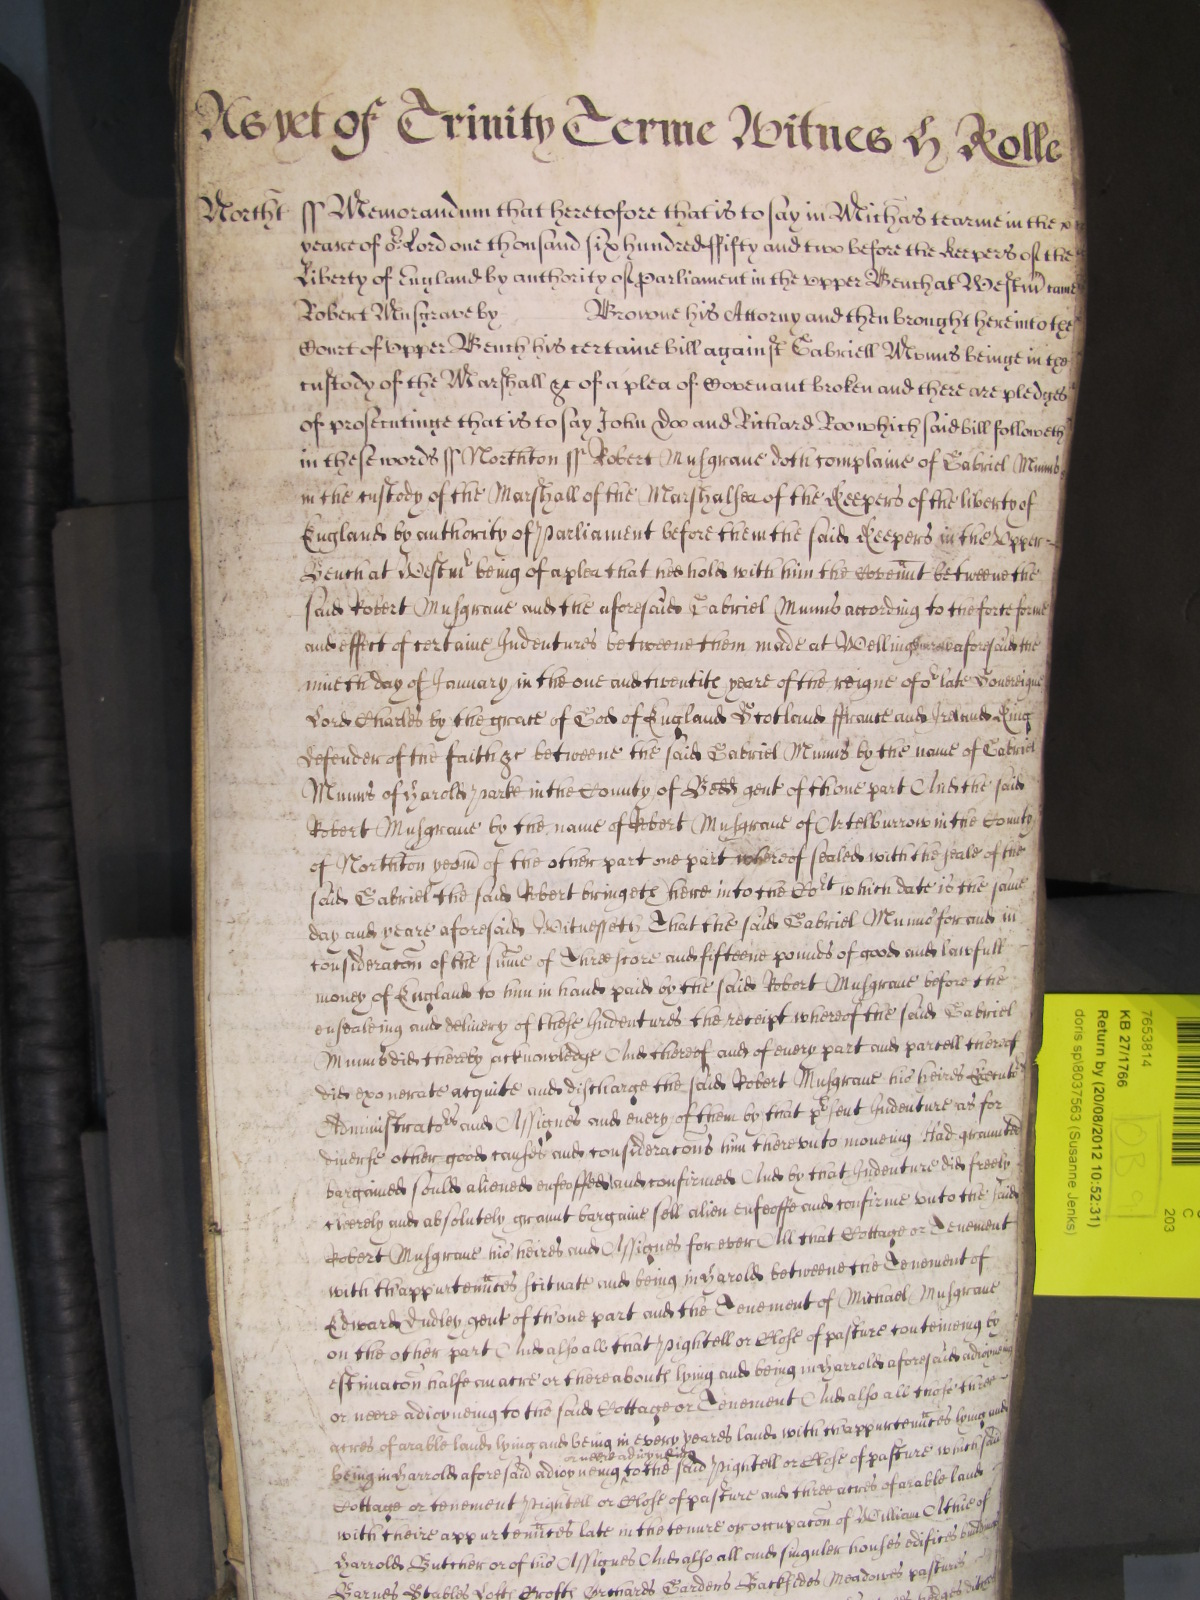 As yet of Trinity Terme Witnes H Rolle
Northt ss Memorandum that heretofore that is to say in Michas tearme in the
yeare of or Lord one thousand six hundred ffifty and two before the Keepers of the
Liberty of England by authority of Parliament in the vpper Bench at Westm came
Robert Musgrave by Browne his Attorny and then brought here into the
Court of vpper Bench his certaine bill against Gabriell Munns beinge in the
custody of the Marshall &c of a plea of Covenant broken and there are pledges
of prosecutinge that is to say John Doo and Richard Roo which said bill followeth
in these words ss Northton ss Robert Musgraue doth complaine of Gabriel Munns
in the custody of the Marshall of the Marshalsea of the Keepers of the liberty of
England by authority of Parliament before them the said Keepers in the Vpper
Bench at Westmr being of a plea that hee hold with him the Covennt betweene the
said Robert Musgraue and the aforesaid Gabriel Munns according to the force forme
and effect of certaine Indentures betweene them made at aforesaid the
nineth day of January in the one and twentith yeare of the reigne of or late Sovereigne
Lord Charles by the grace of God of England Scotland ffrance and Ireland King
defender of the faith &c betweene the said Gabriel Munns by the name of Gabriel
Munns of Harold Parke in the County of Bedd gent of thone part And the said
Robert Musgraue by the name of Robert Musgraue of Artelburrow in the County
of Northton yeom of the other part one part whereof sealed with the seale of the
said Gabriel the said Robert bringeth here into the Cort which date is the same
day and yeare aforesaid Witnesseth That the said Gabriel Munns for and in
consideracon of the sume of Three score and fifteene pounds of good and lawfull
money of England to him in hand paid by the said Robert Musgraue before the
ensealeing and delivery of these Indentures the receipt whereof the said Gabriel
Munns did thereby acknowledge And thereof and of every part and parcell thereof
did exonerate acquite and discharge the said Robert Musgraue his heires Executrs
Administrators and Assignes and euery of them by that prsent Indenture as for
diuerse other good causes and consideracons him therevnto moueing Had graunted
bargained sould aliened enfeoffed and confirmed And by that Indenture did freely
cleerely and absolutely graunt bargaine sell alien enfeoffe and confirme vnto the said
Robert Musgraue his heires and Assignes for ever All that Cottage or Tenement
with thappurtennces scituate and being in Harold betweene the Tenement of
Edward Dudley gent of thone part and the Tenement of Michael Musgraue
on the other part And also all that Pightell or Close of pasture conteineing by
estimacon halfe an acre or thereabouts lying and being in Harrold aforesaid adioyneing
or neere adioyneing to the said Cottage or Tenement And also all those three
acres of arable land lying and being in every yeares land with thappurtennces lying and
or neere adioyneing
being in Harrold aforesaid adioyneing to the said Pightell or Close of pasture which said
Cottage or tenement Pightell or Close of pasture and three acres of arable land
with theire appurtennces late in the tenure or occupacon of William of
Harrold Butcher or of his Assignes And also all and singuler houses edifices buildings
Barnes Stables Lofts Crofts Orchards Gardens Backsides Meadowes pastures
7653814
KB 27/1766
Return by (20/08/2012 10:52:31)
doris spl8037563 (Susanne Jenks)
C
203